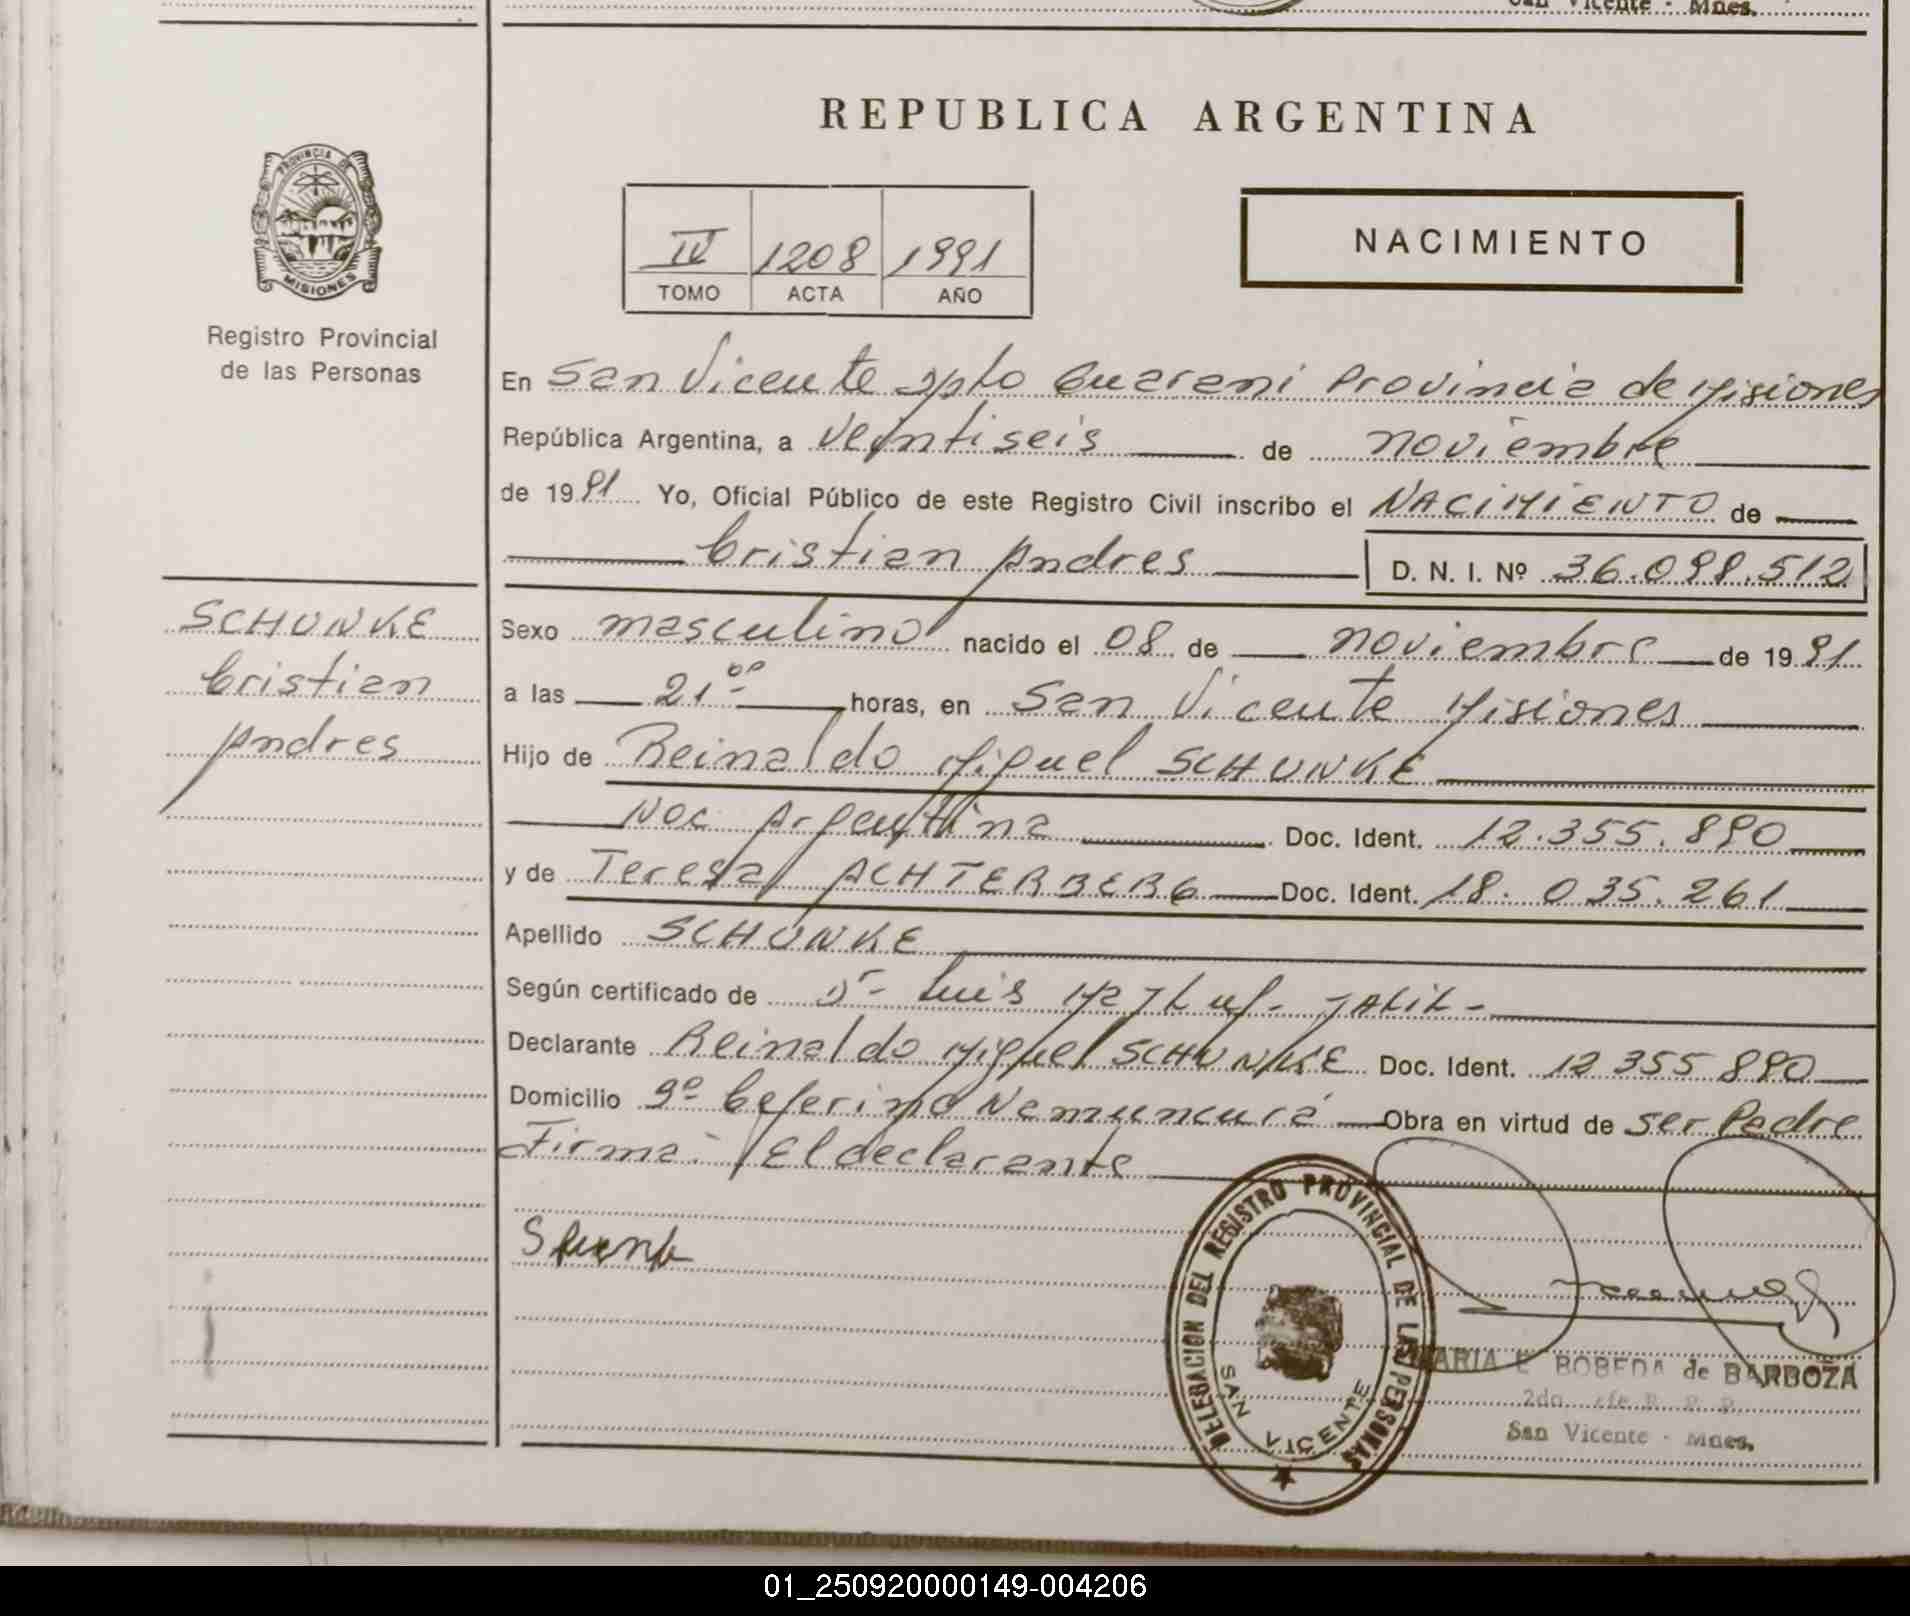 San Vicente - Mnes.
REPUBLICA ARGENTINA
PROVINCIA DE
MISIONES
Registro Provincial
de las Personas
IV 1208 1991
TOMO ACTA AÑO
NACIMIENTO
En San Vicente Dpto Guarani Provincia de Misiones
República Argentina, a Veintiseis de noviembre
de 1991 Yo, Oficial Público de este Registro Civil inscribo el NACIMIENTO de
Cristian Andres D. N. I. Nº 36.098.512
SCHUNKE
Cristian
Andres
Sexo masculino nacido el 08 de noviembre de 1991
a las 21 oo horas, en San Vicente Misiones
Hijo de Reinaldo Miguel SCHUNKE
Nac. Argentina Doc. Ident. 12.355.890
y de Teresa ACHTERBERG Doc. Ident. 18.035.261
Apellido SCHUNKE
Según certificado de Dr Luis JALIL
Declarante Reinaldo Miguel SCHUNKE Doc. Ident. 12 355 890
Domicilio Bº Ceferino Namuncurá Obra en virtud de ser Padre
Firma: El declarante
DELEGACION DEL REGISTRO PROVINCIAL DE LAS PERSONAS
SAN VICENTE
MARIA E BOBEDA de BARBOZA
2do. Jefe R. P. P.
San Vicente - Mnes.
01_250920000149-004206